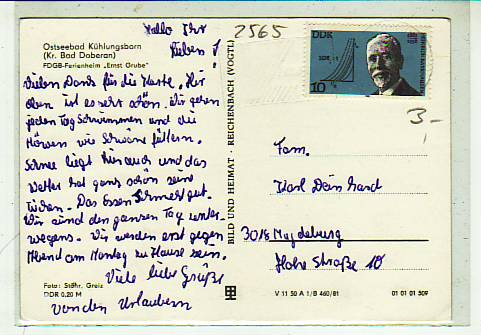 Hallo Ihr
Lieben!
2565
Ostseebad Kühlungsborn
(Kr. Bad Doberan)
FDGB-Ferienheim „Ernst Grube"
Vielen Dank für die Karte. Hier
oben ist es sehr schön. Wir gehen
jeden Tag Schwimmen und die
Möwen wie Schwäne füttern.
Schnee liegt hier auch und das
Wetter hat ganz schön seine
Tücken. Das Essen schmeckt gut.
Wir sind den ganzen Tag unter-
wegens. Wir werden erst gegen
Abend am Montag zu Hause sein.
Viele liebe Grüße
von den Urlaubern
Foto: Stöhr, Greiz
DDR 0,20 M
BILD UND HEIMAT · REICHENBACH (VOGTL)
DDR
10
3,-
Fam.
Karl Deinhard
3018 Magdeburg
Hohe Straße 10
V 11 50 A 1/B 460/81
01 01 01 309